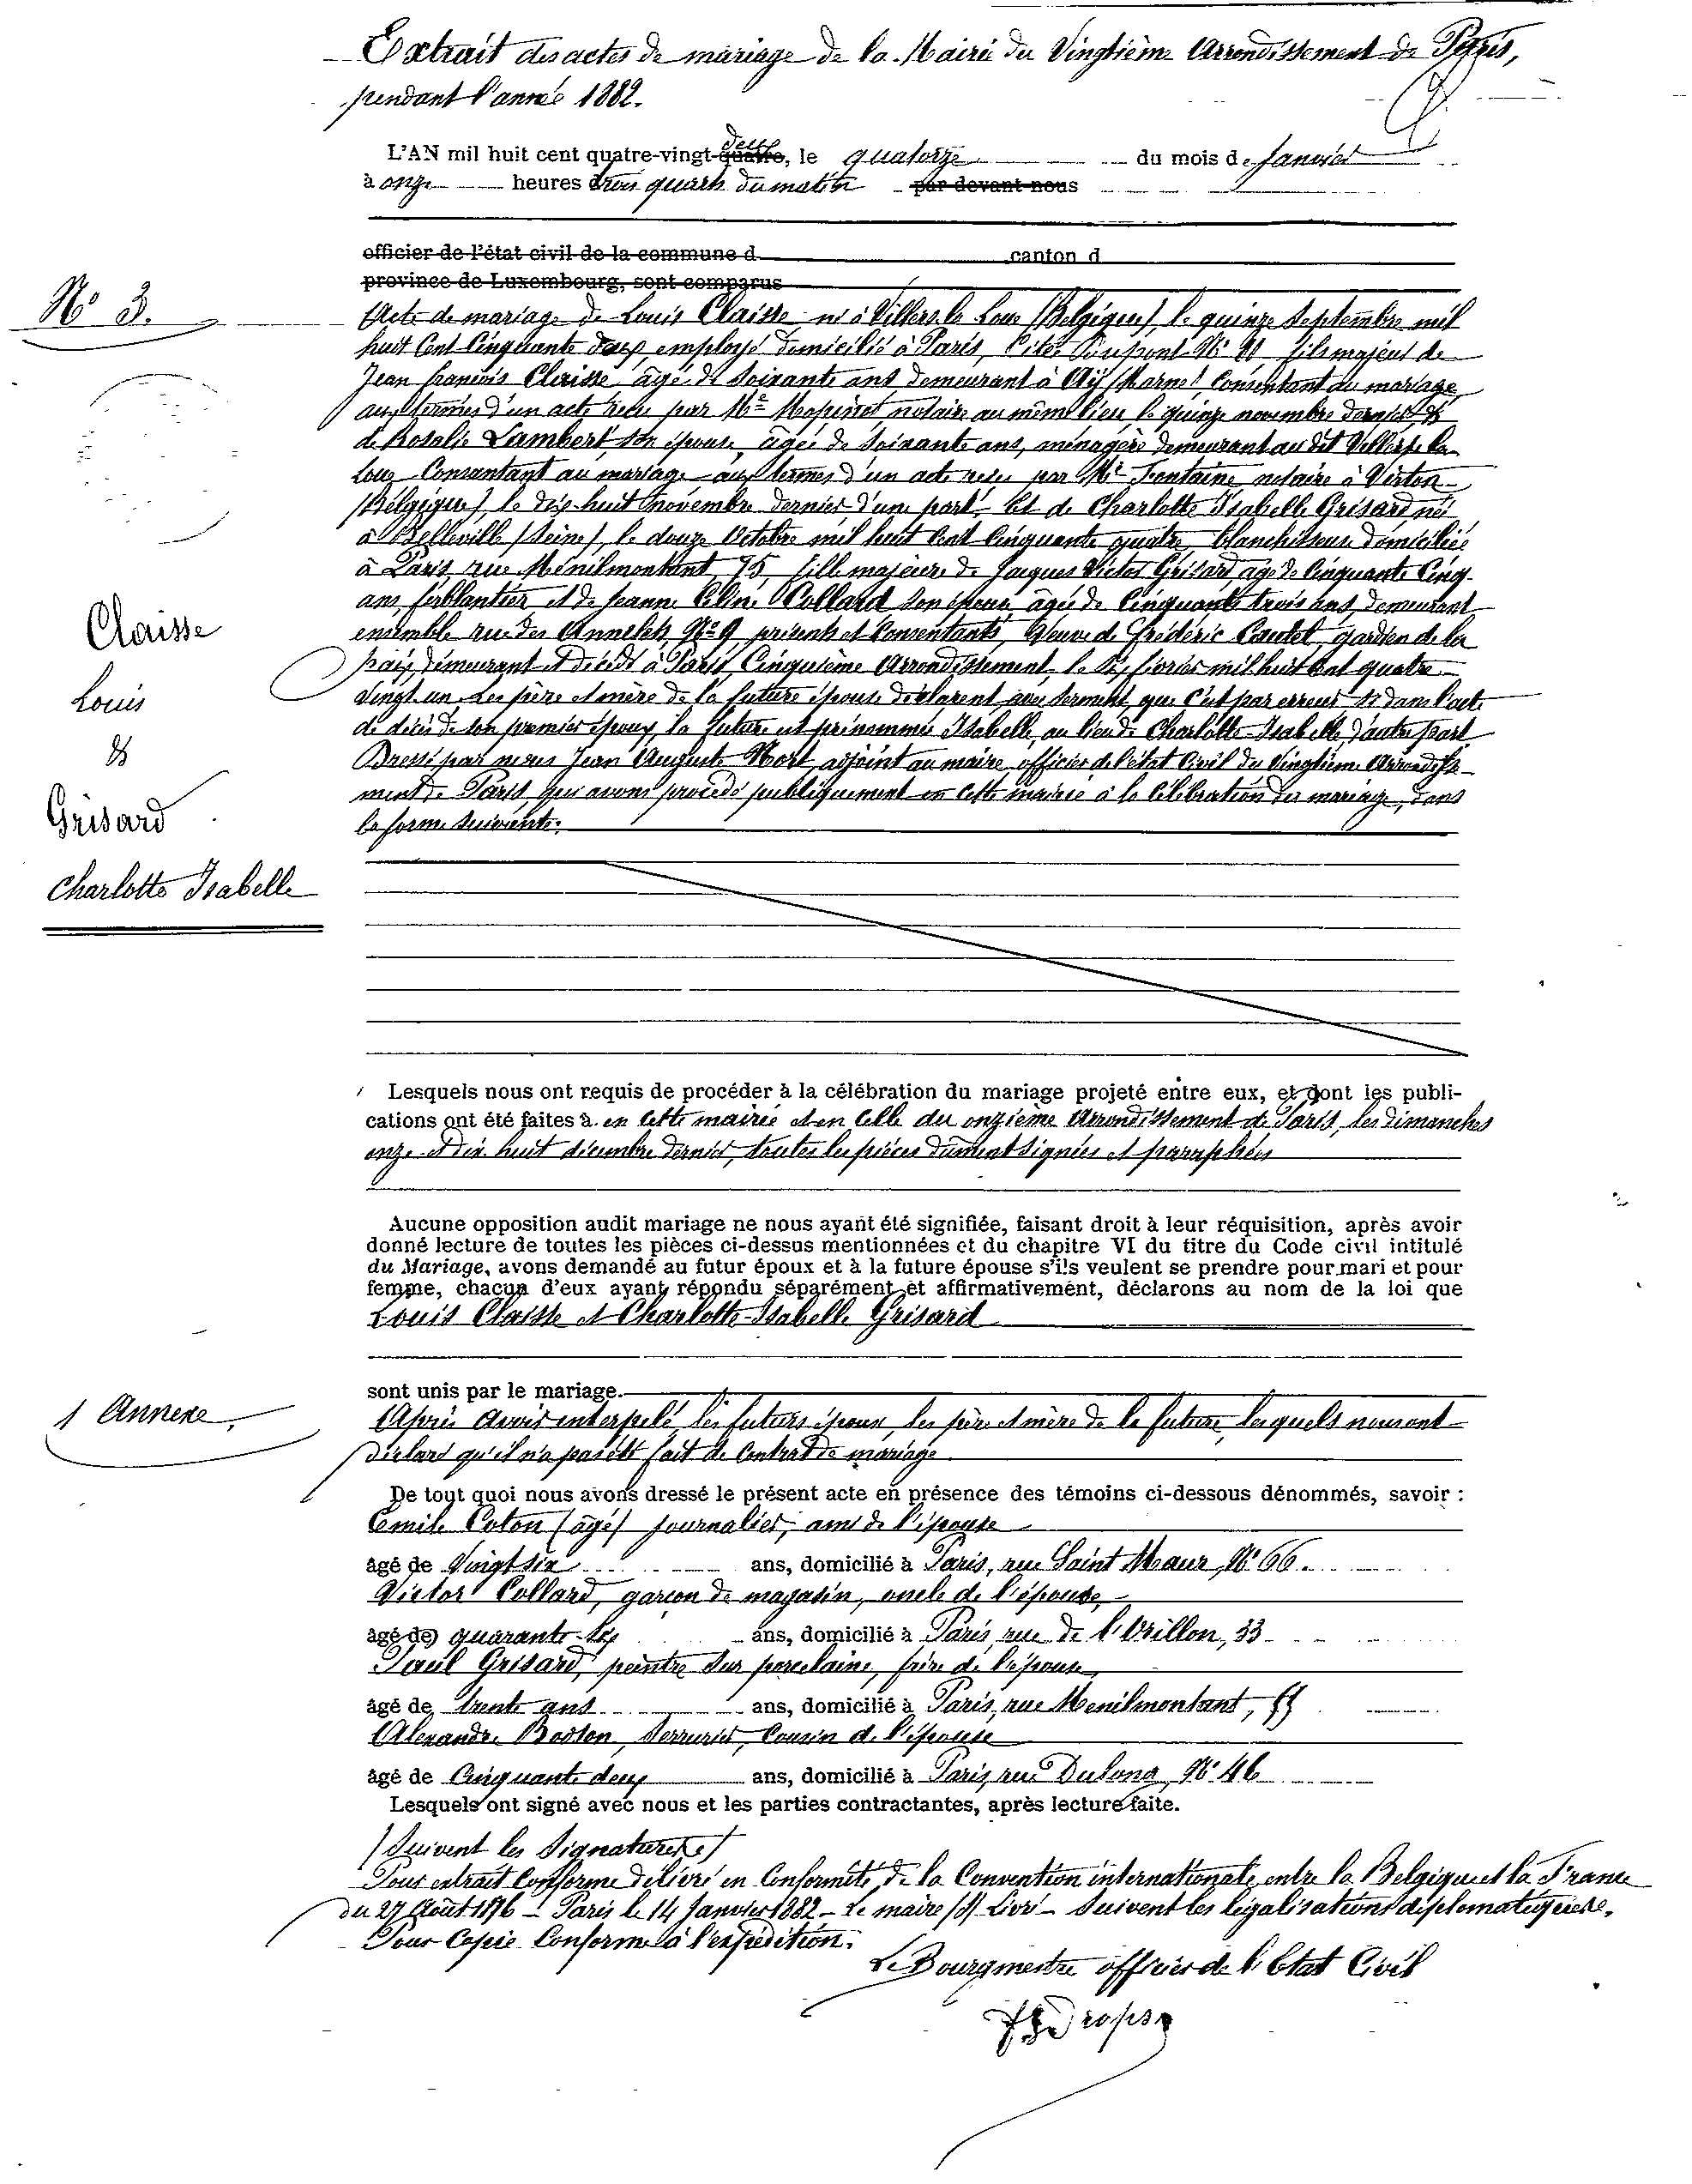 Extrait des actes de mariage de la Mairie du Vingtième Arrondissement de Paris,
pendant l'année 1882.
L'AN mil huit cent quatre-vingt-quatre, deux le quatorze du mois de Janvier
à onze heures trois quarts du matin par devant nous
officier de l'état civil de la commune d canton d
province de Luxembourg, sont comparus
N° 3.
Acte de mariage de Louis Claisse né à Villers-la-Loue (Belgique), le quinze Septembre mil
huit Cent Cinquante deux employé domicilié à Paris, Cité Dupont N° fils majeur de
Jean François Claisse âgé de soixante ans demeurant à Aÿ (Marne) Consentant au mariage,
aux termes d'un acte reçu par Me Mopinot, notaire au même lieu, le quinze novembre dernier, &
de Rosalie Lambert son épouse, âgée de soixante ans, ménagère demeurant au dit Villers-la-
Loue Consentant au mariage aux termes d'un acte reçu par Me Fontaine notaire à Virton
(Belgique), le dix-huit novembre dernier d'une part. Et de Charlotte Isabelle Grisard, née
à Belleville (Seine), le douze Octobre mil huit Cent Cinquante quatre, blanchisseuse domiciliée
à Paris, rue Ménilmontant, 75, fille majeure de Jacques Victor Grisard âgé de Cinquante Cinq
ans, ferblantier et de Jeanne Céline Collard son épouse âgée de Cinquante trois ans, demeurant
ensemble rue des Annelets N° 9 présents et Consentants, Veuve de Frédéric Cautel, gardien de la
paix, demeurant et décédé à Paris, Cinquième Arrondissement, le six février mil huit Cent quatre
vingt un. Les père et mère de la future épouse déclarent, sous serment, que C'est par erreur si dans l'acte
de décès de son premier époux, la future est prénommée Isabelle, au lieu de Charlotte-Isabelle, d'autre part
Dressé par nous Jean Auguste Mort, adjoint au maire, officier de l'état Civil du Vingtième Arrondisse-
ment de Paris, qui avons procédé publiquement en Cette mairie à la Célébration du mariage, dans
la forme suivante:
Claisse
Louis
&
Grisard
Charlotte Isabelle
Lesquels nous ont requis de procéder à la célébration du mariage projeté entre eux, et dont les publi-
cations ont été faites à en Cette mairie et en Celle du onzième Arrondissement de Paris, les dimanches
onze et dix huit décembre dernier, toutes les pièces dûment signées et paraphées
Aucune opposition audit mariage ne nous ayant été signifiée, faisant droit à leur réquisition, après avoir
donné lecture de toutes les pièces ci-dessus mentionnées et du chapitre VI du titre du Code civil intitulé
du Mariage, avons demandé au futur époux et à la future épouse s'ils veulent se prendre pour mari et pour
femme, chacun d'eux ayant répondu séparément et affirmativement, déclarons au nom de la loi que
Louis Claisse et Charlotte-Isabelle Grisard
sont unis par le mariage.
1 Annexe.
Après avoir interpelé, les futurs époux, les père et mère de la future, lesquels nous ont
déclaré qu'il n'a pas été fait de Contrat de mariage
De tout quoi nous avons dressé le présent acte en présence des témoins ci-dessous dénommés, savoir :
Emile Coton (âgé) journalier, ami de l'épouse
âgé de Vingt six ans, domicilié à Paris, rue Saint Maur, N° 66.
Victor Collard, garçon de magasin, oncle de l'épouse,
âgé de quarante-six ans, domicilié à Paris, rue de l'Orillon, 33
Paul Grisard, peintre sur porcelaine, frère de l'épouse,
âgé de trente ans ans, domicilié à Paris, rue Menilmontant,
Alexandre Bodson, Serrurier, Cousin de l'épouse
âgé de Cinquante deux ans, domicilié à Paris, rue Dulong, N° 46
Lesquels ont signé avec nous et les parties contractantes, après lecture faite.
(Suivent les Signatures)
Pour extrait Conforme délivré en Conformité de la Convention internationale entre la Belgique et la France
du 27 Août 1876 - Paris le 14 Janvier 1882 - Le maire (s) Livré - Suivent les légalisations diplomatiques.
Pour Copie Conforme à l'expédition.
Le Bourgmestre officier de l'Etat Civil